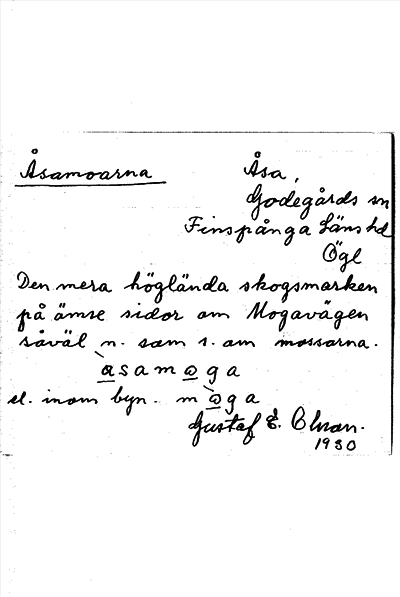 Åsamoarna
Åsa,
Godegårds sn
Finspånga Läns hd
Ögl
Den mera höglända skogsmarken
på ömse sidor om Mogavägen
såväl n. som s. om mossarna.
àsamoga
el. inom byn. mòga
Gustaf E. Olsson.
1930